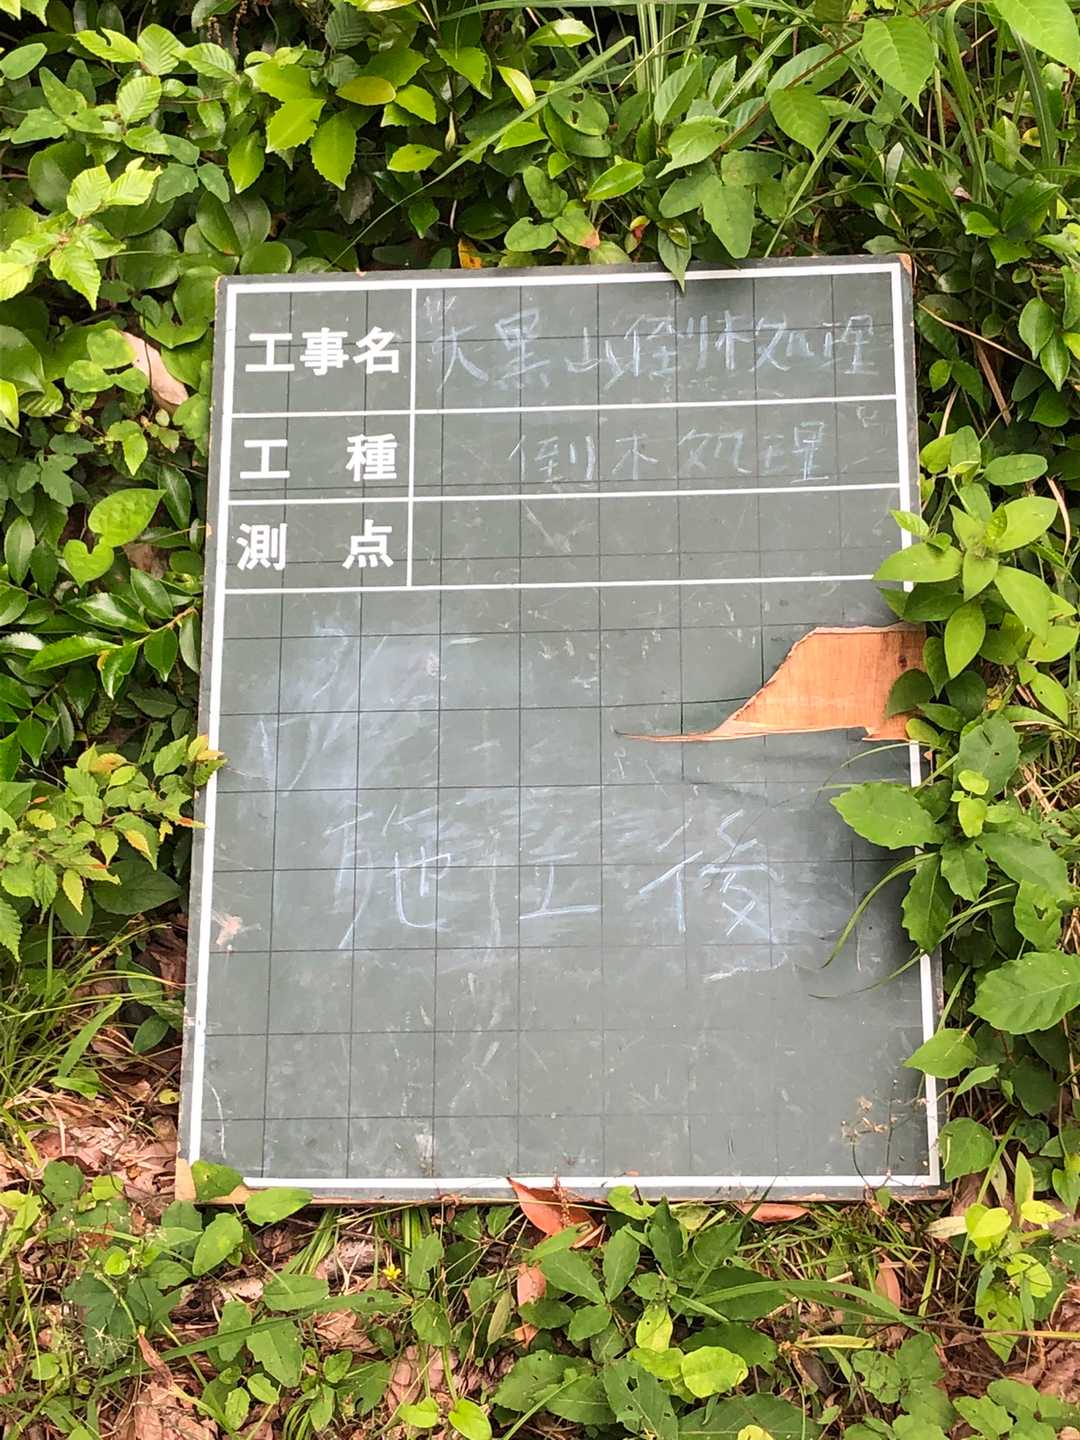 工事名 大黒山倒木処理
工種 倒木処理
測点
施工後